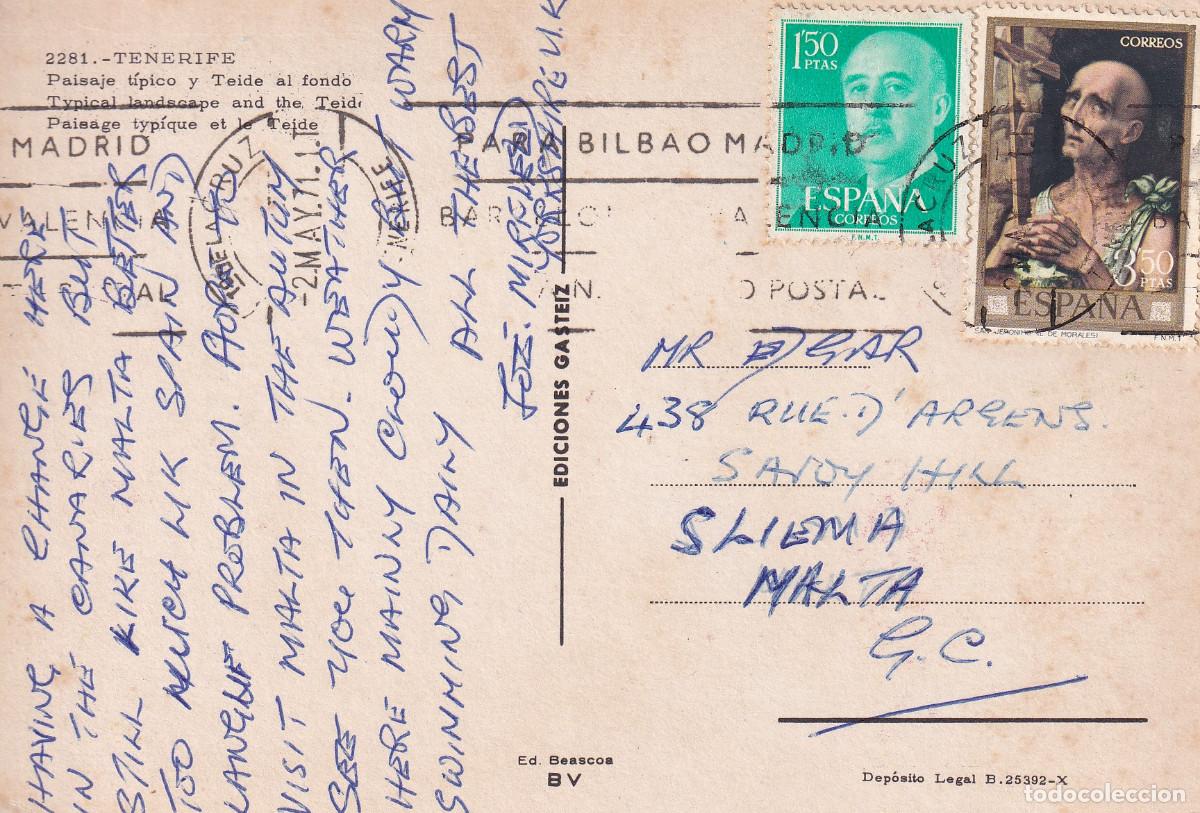 2281.-TENERIFE
Paisaje típico y Teide al fondo
Typical landscape and the Teide
Paisage typíque et le Teide
HAVING A CHANGE HERE
IN THE CANARIES BUT
STILL LIKE MALTA BETTER
TOO MUCH LIK SPAIN AND
LANGUE PROBLEM. HOPE TO
VISIT MALTA IN THE AUTUM
SEE YOU THEN. WEATHER
HERE MAINLY CLOUDY BUT WARM
SWIMING DAILY ALL THE BEST
EDICIONES GASTEIZ
1'50
PTAS
ESPAÑA
CORREOS
F.N.M.T.
CORREOS
3'50
PTAS
ESPAÑA
SAN JERONIMO (L. DE MORALES)
F.N.M.T.
MADRID
VALENCIA
PARA BILBAO MADRID
BARCELONA VALENCIA
POSTAL
-2.MAY.71.1
MR EDGAR
438 RUE. D'ARGENS.
SAVOY HILL
SLIEMA
MALTA
G.C.
Ed. Beascoa
BV
Depósito Legal B.25392-X
todocoleccion